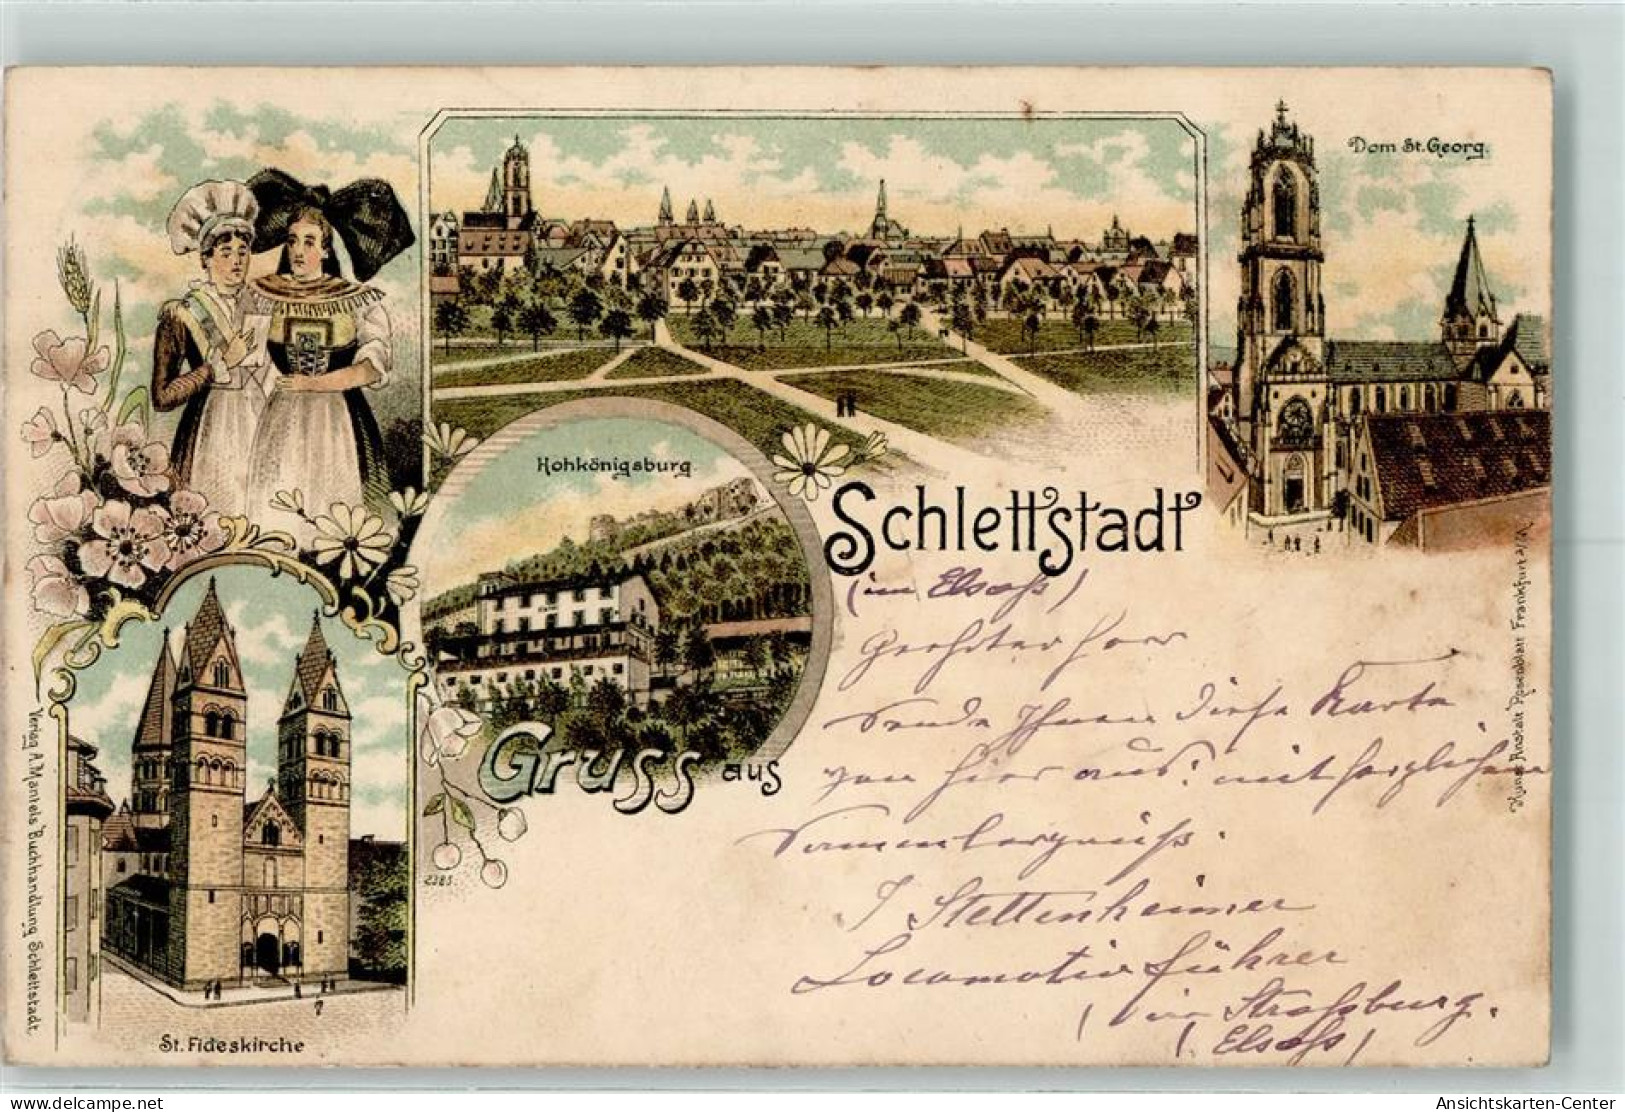 Dom St. Georg.
Hohkönigsburg
Schlettstadt
(im Elsaß)
Gruss aus
Geehrter Herr
Sende Ihnen diese Karte
von hier aus: mit herzlichem
J Stettenheimer
Locomotivführer
(in Straßburg.
(Elsaß)
2385.
St. Fideskirche
Verlag A. Mantels Buchhandlung Schlettstadt.
Kunst Anstalt Rosenblatt Frankfurt a/M.
delcampe.net
Ansichtskarten-Center